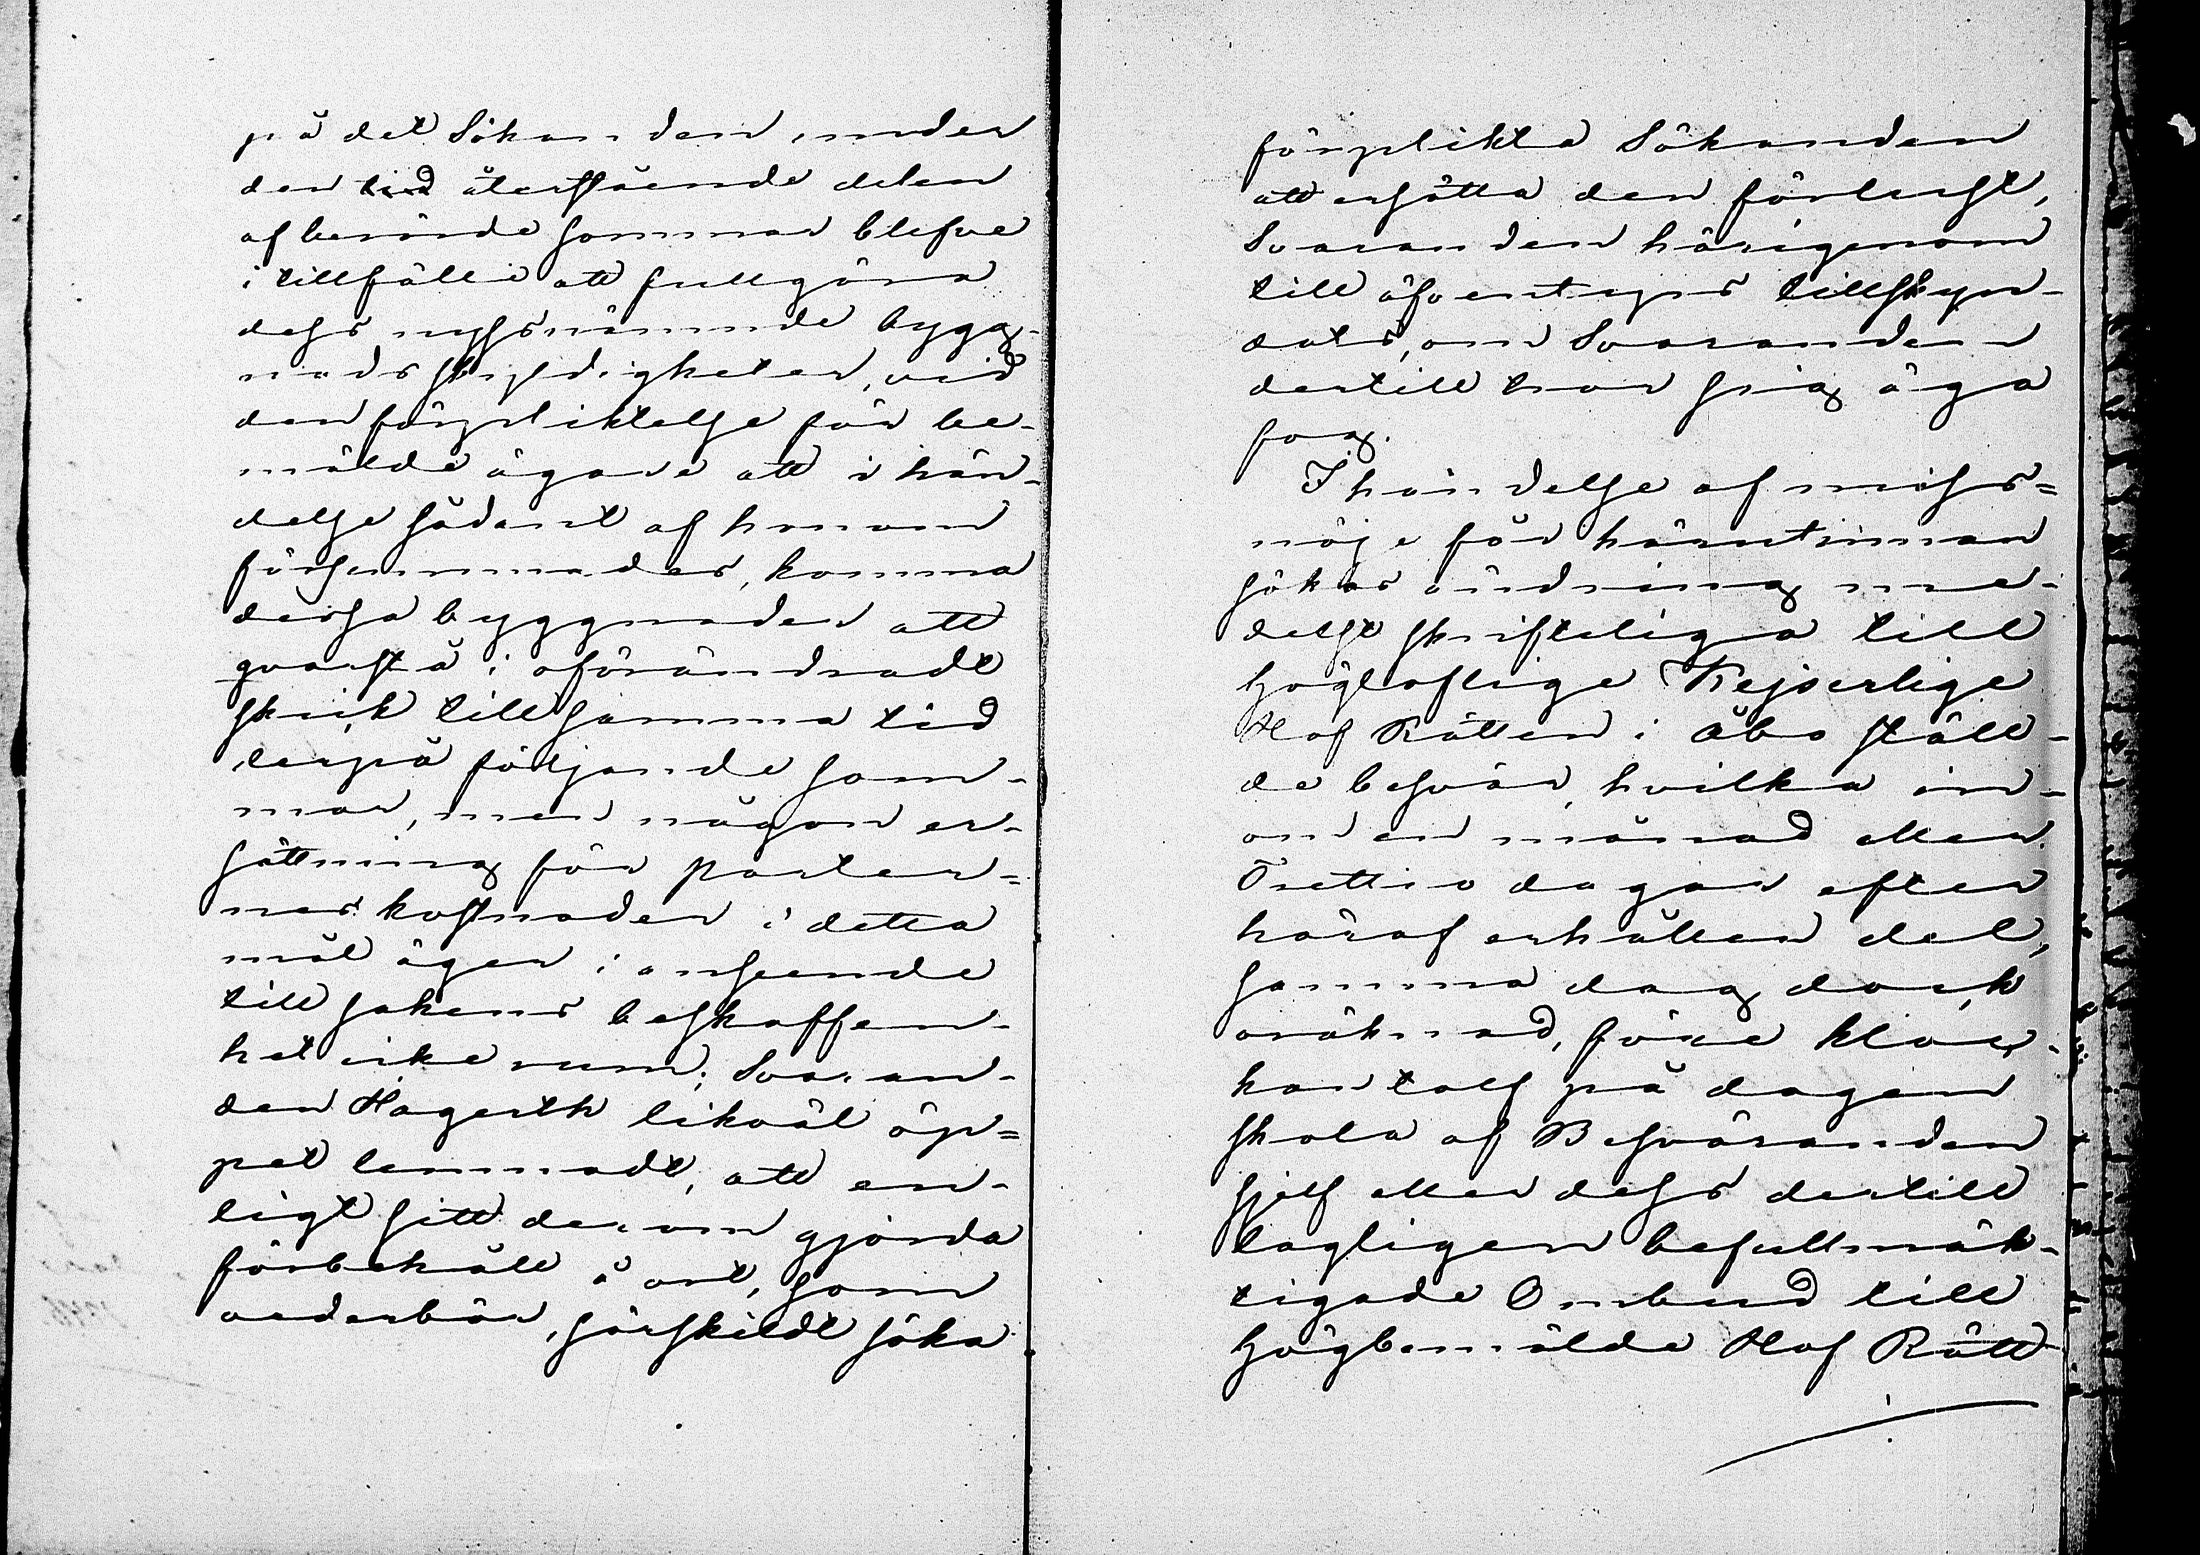 på det Sökanden, under
den tid återstående delen
af berörde sommar blefve
i tillfälle att fullgöra
dess nyssnämnde bygg-
nadsskyldigheter, vid
den förpliktelse för be-
mälde ägare att i hän-
delse sådant af honom
försummades, komma
dessa byggnader att
qvarstå i oförändradt
skick till samma tid
derpå följande som-
mar, men någon er-
sättning för parter-
nes kostnader i detta
mål äger i anseende
till sakens beskaffen-
het icke rum; Svaran-
den Hagerth likväl öp-
pet lemnadt, att en-
ligt sitt derom gjorda
förbehåll å ort, som
vederbör, särskildt söka
förplikta Sökanden
att ersätta den förlust,
Svaranden härigenom
till äfventyrs tillskyn-
dats, om Svaranden
dertill tror sig äga
fog.
I händelse af miss-
nöje får häruti innan
sökas ändring me-
delst skrifteliga till
Högloflige Kejserlige
Hof Rätten i Åbo ställ-
de besvär, hvilka in-
om en månad eller
Trettio dagar efter
häraf erhållen del,
samma dag dock
oräknad, före kloc-
kan tolf på dagen
skola af Besväranden
sjelf eller dess dertill
lagligen befullmäk-
tigade Ombud till
Högbemälde Hof Rätt